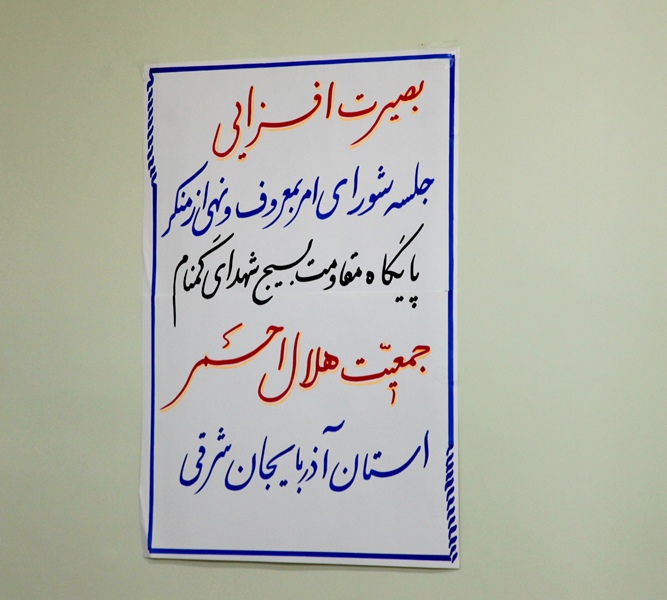 بصیرت افزایی
جلسه شورای امر بمعروف و نهی از منکر
پایگاه مقاومت بسیج شهدای گمنام
جمعیّت هلال احمر
استان آذربایجان شرقی